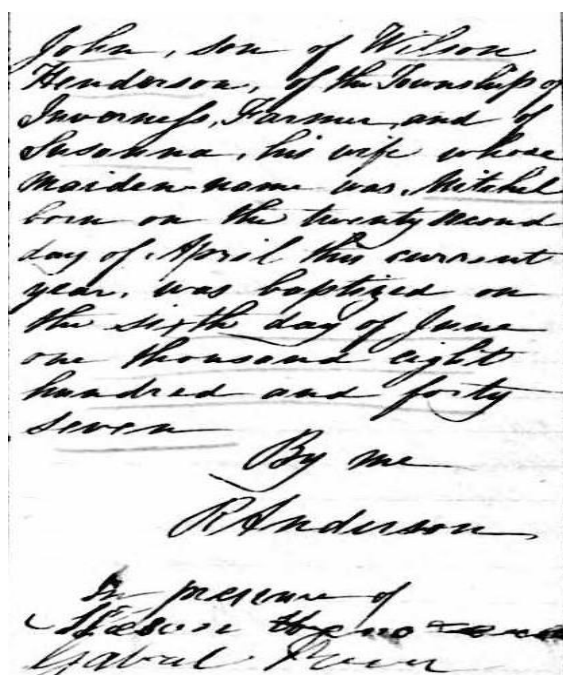 John, son of Wilson
Henderson, of the Township of
Inverness, Farmer, and of
Susanna, his wife whose
maiden name was, Mitchel
born on the twenty second
day of April this current
year, was baptized on
the sixth day of June
one thousand eight
hundred and forty
seven
By me
R Anderson
In presence of